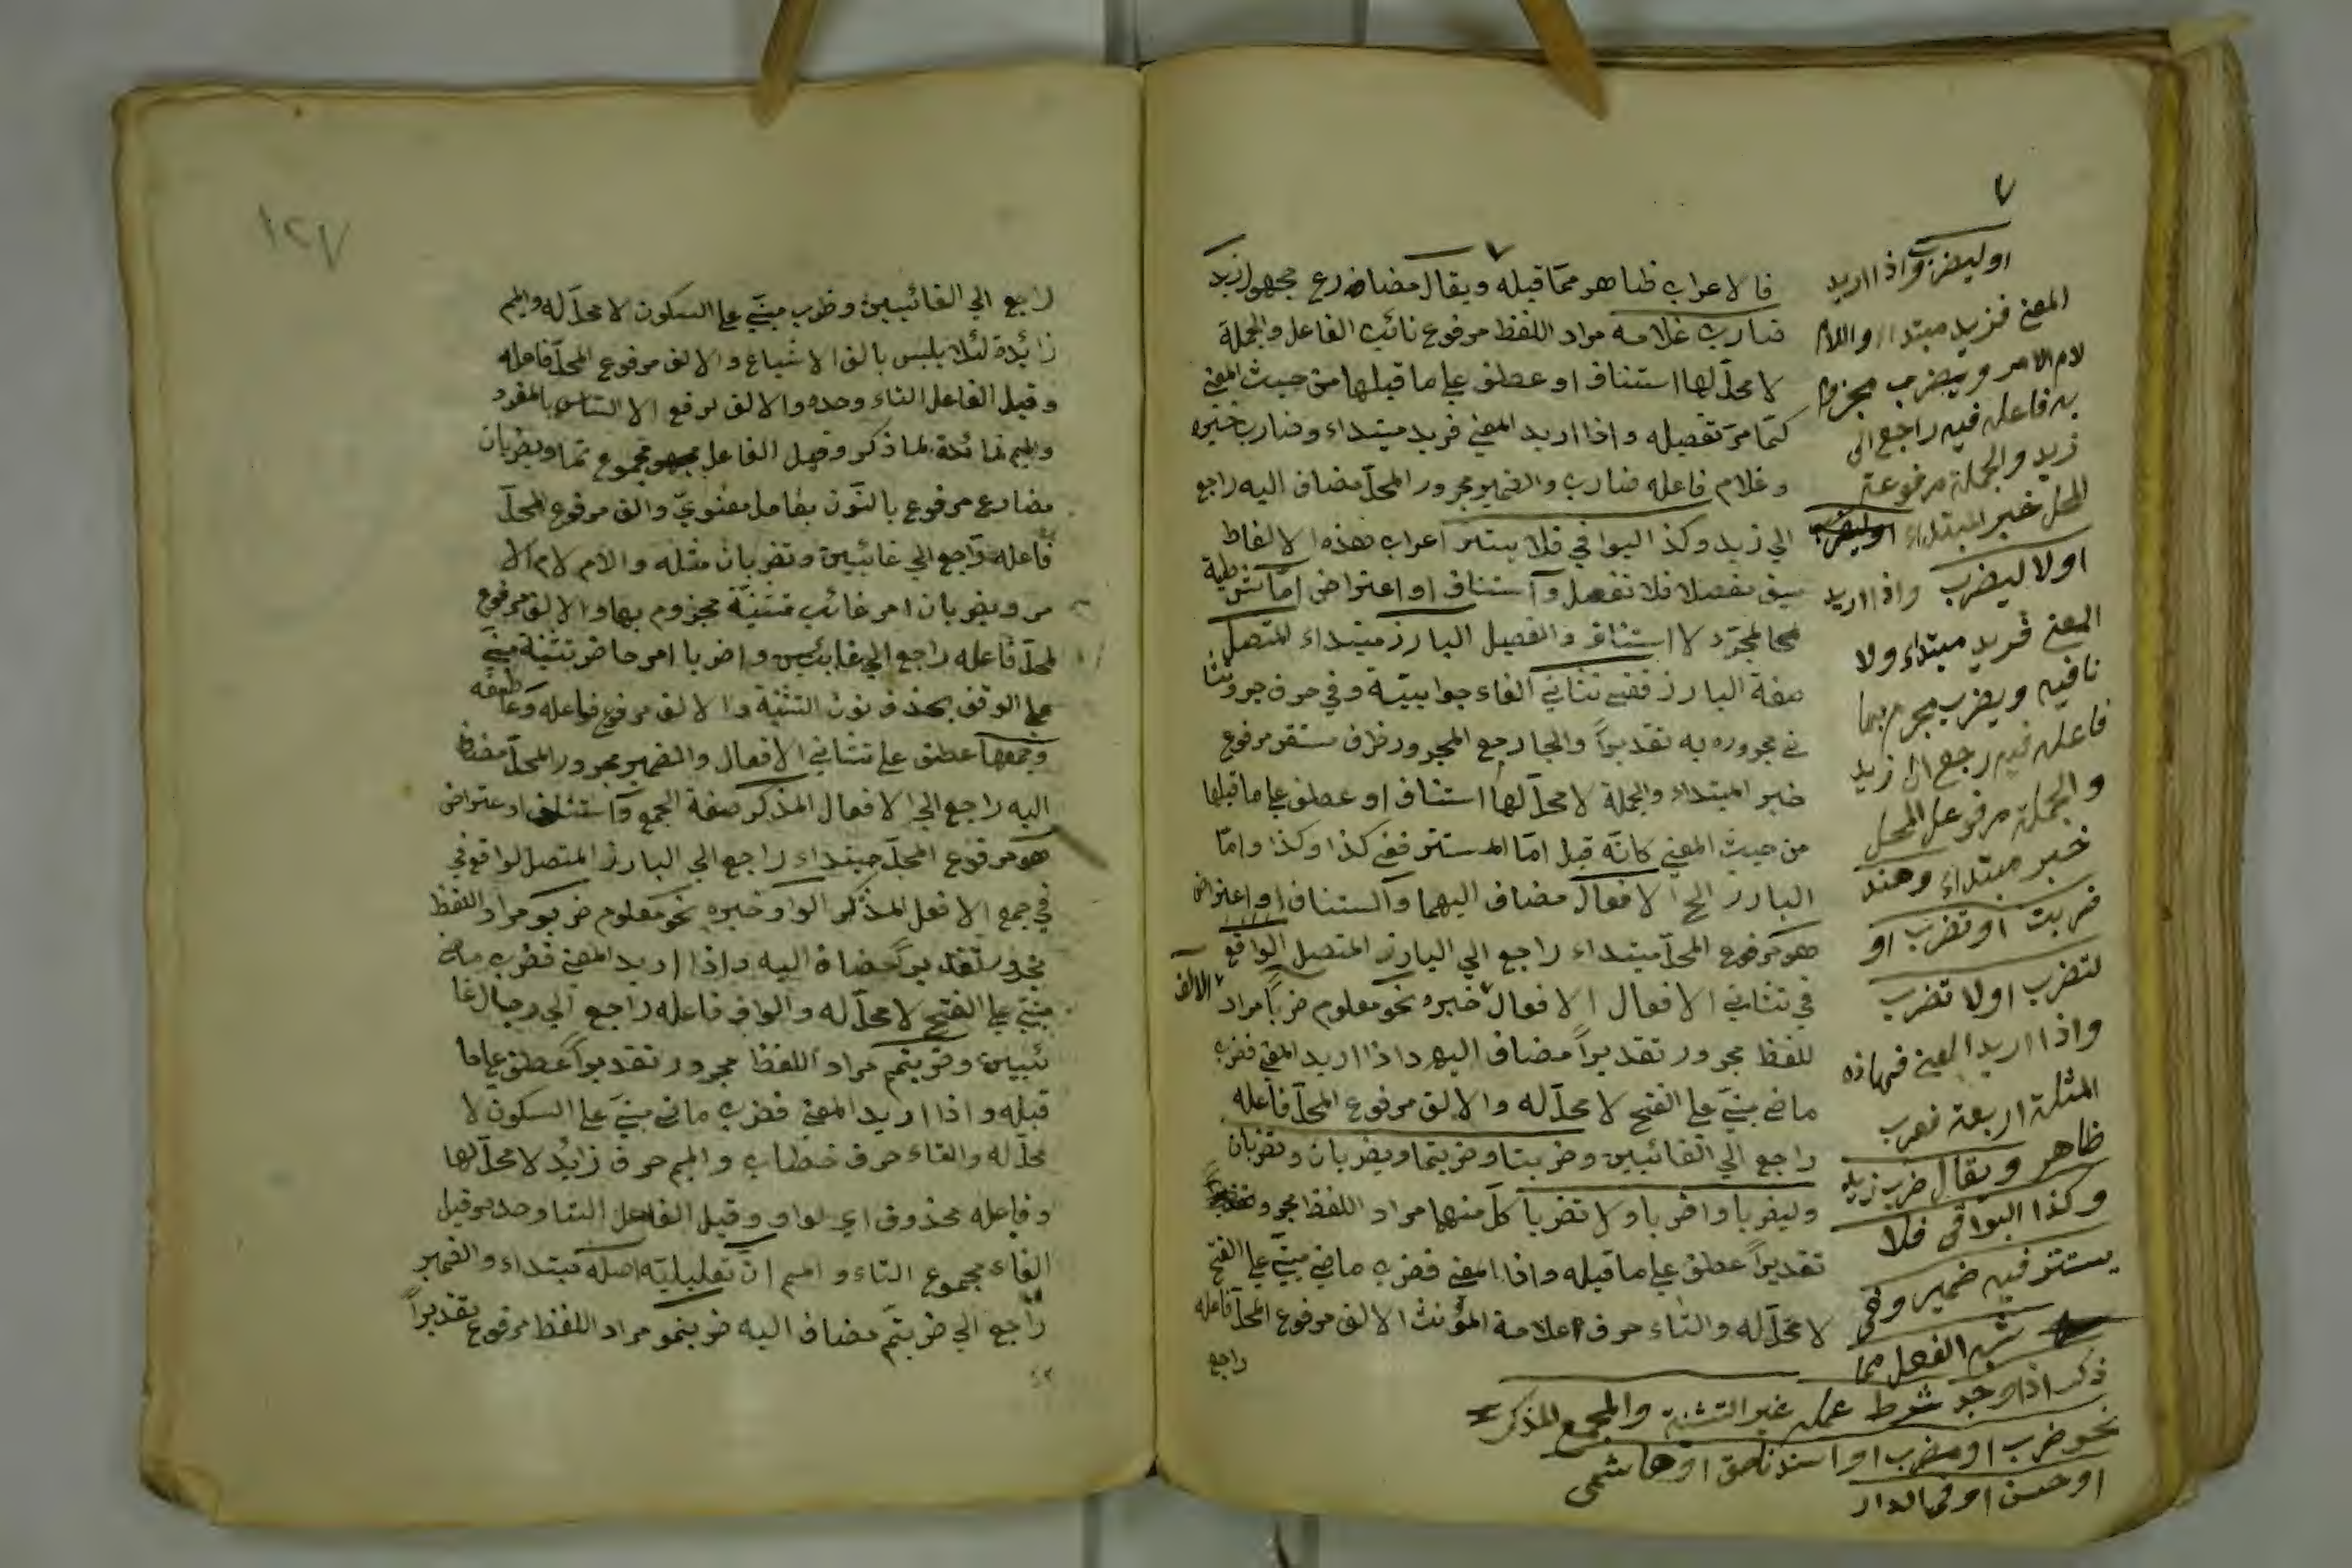 ٧
فالاعراب ظاهر مما قبله ويقال مضارع مجهول زيد
ضارب غلامه مراد اللفظ مرفوع نائب الفاعل والجملة
لا محل لها استئناف او عطف على ما قبلها من حيث المعنى
كما مر تفصيله واذا اريد المعنى فزيد مبتداء وضارب خبره
وغلام فاعله ضارب والضمير مجرور المحل مضاف اليه راجع
الى زيد وكذا البواقي فلا يستتر اعراب هذه الالفاظ
سبق مفصلا فلا تفصل و استئناف او اعتراض اما شرطية
لمجا لمجرد لا استئناف والفصيل البارز مبتداء المتصل
صفة البارز ففي تثاني الفاء جوابية وفي حرف جر وتثا
ني مجروره به تقديرا والجار مع المجرور ظرف مستقر مرفوع
خبر المبتداء والجملة لا محل لها استئناف او عطف على ما قبلها
من حيث المعنى كانه قيل اما المستتر ففي كذا وكذا واما
البارز الخ الافعال مضاف اليهما و استئناف او اعتراض
هو مرفوع المحل مبتداء راجع الى البارز المتصل الواقع
في تثاني الافعال الافعال خبره نحو معلوم ضربا مراد
الالف
للفظ مجرور تقديرا مضاف اليه واذا اريد المعنى فضرب
ماضي مبني على الفتح لا محل له والالف مرفوع المحل فاعله
راجع الى الغائبين وضربتا وضربتما ويضربان وتضربان
وليضربا واضربا ولا تضربا كل منهما مراد اللفظ مجرور
تقديرا عطف على ما قبله واذا المعنى فضرب ماضي مبني على الفتح
لا محل له والتاء حرف علامة المؤنث الالف مرفوع المحل فاعله
راجع
او ليضرب واذا اريد
المعنى فزيد مبتداء واللام
لام الامر ويضرب مجزوم
به فاعله فيه راجع الى
زيد والجملة مرفوعة
المحل خبر المبتداء
اولا ليضرب واذا اريد
المعنى فزيد مبتداء ولا
نافيه ويضرب مجزم بها
فاعله فيه رجع الى زيد
والجملة مرفوعل المحل
خبر مبتداء وهند
ضربت او تضرب او
لتضرب اولا تضرب
واذا اريد المعنى فهاذه
المثلة اربعة فعرب
ظاهر ويقال ضرب زيد
وكذا البواقي فلا
يستتر فيه ضمير وفي
شبه الفعل مما
ذكر اذا وجد شرط عمله غير التثنية والجمع المذكر
نحو ضرب او مضرب او اسند ناصق او هاشمي
او حسن او في الدار
١٢٧
راجع الى الغائبين وضرب مبني على السكون لا محل له والميم
زائدة لئلا يلبس بالف الاشباع والالف مرفوع المحل فاعله
وقيل الفاعل التاء وحده والالف لرفع الالتباس بالمفرد
والميم زائدة لما ذكر وقيل الفاعل مجموع تما ويضربان
مضارع مرفوع بالنون بعامل معنوي والف مرفوع المحل
فاعله راجع الى غائبين وتضربان مثله والام لام الا
مر ويضربان امر غائب تثنية مجزوم بها والالف مرفوع
لمحل فاعله راجع الى غائبين واضربا امر حاضر تثنية مبني
على الوقف بحذف نون التثنية والالف مرفوع فاعله وعاطفه
وجمعها عطف على تثاني الافعال والضمير مجرور المحل مضاف
اليه راجع الى الافعال المذكر صفة الجمع و استئناف او عتراض
هو مرفوع المحل مبتداء راجع الى البارز المتصل لواقع في
في جمع الافعل المذكر الواو خبره نحو معلوم ضربو مراد اللفظ
مجرور تقديرا مضاف اليه واذا اريد المعنى فضرب ماض
مبني على الفتح لا محل له والواو فاعله راجع الى رجال غا
ئبين وضربتم مراد اللفظ مجرور تقديرا عطف على ما
قبله واذا اريد المعنى فضرب ماضي مبني على السكون لا
محل له والتاء حرف خطاب والميم حرف زائد لا محل لها
وفاعله محذوف اي لواو وقيل الفاعل التا وحده وقيل
الفاء مجموع التاء والميم ان تعليلية اصله مبتداء والضمير
راجع الى ضربتم مضاف اليه ضربتمو مراد اللفظ مرفوع تقديرا